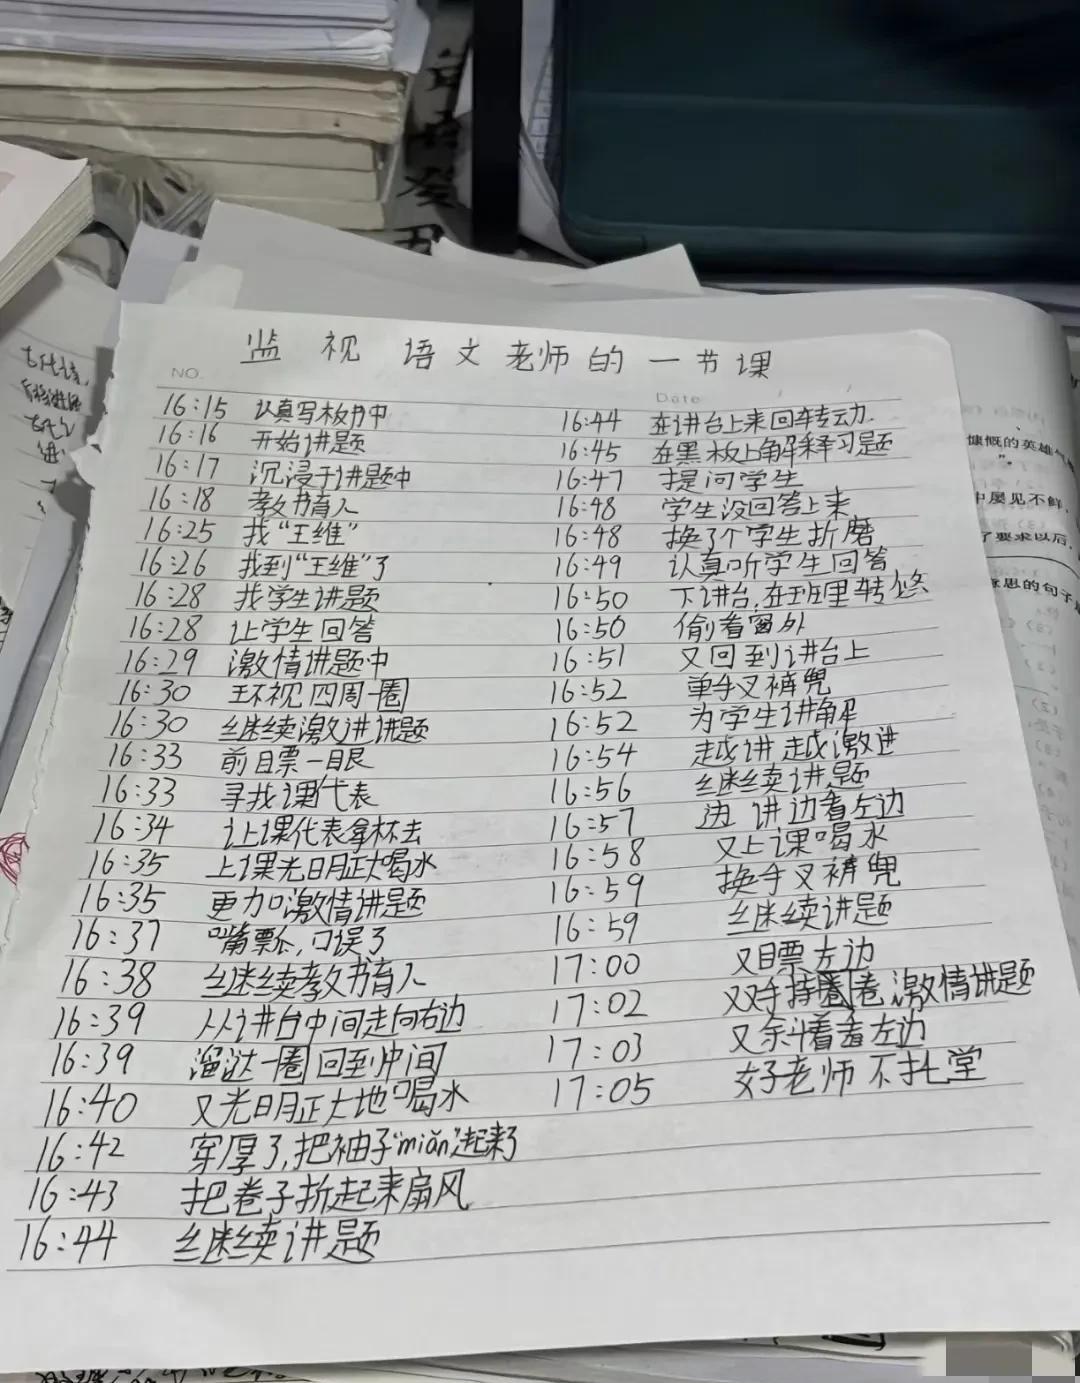 监视语文老师的一节课
NO.
Date
16:15 认真写板书中
16:16 开始讲题
16:17 沉浸于讲题中
16:18 教书育人
16:25 找“王维”
16:26 找到“王维”了
16:28 找学生讲题
16:28 让学生回答
16:29 激情讲题中
16:30 环视四周一圈
16:30 继续激进讲题
16:33 前瞟一眼
16:33 寻找课代表
16:34 让课代表拿杯去
16:35 上课光明正大喝水
16:35 更加激情讲题
16:37 嘴瓢,口误了
16:38 继续教书育人
16:39 从讲台中间走向右边
16:39 溜达一圈回到中间
16:40 又光明正大地喝水
16:42 穿厚了,把袖子“miǎn”起来了
16:43 把卷子折起来扇风
16:44 继续讲题
16:44 在讲台上来回转动
16:45 在黑板上解释习题
16:47 提问学生
16:48 学生没回答上来
16:48 换了个学生折磨
16:49 认真听学生回答
16:50 下讲台,在班里转悠
16:50 偷看窗外
16:51 又回到讲台上
16:52 单手叉裤兜
16:52 为学生讲解
16:54 越讲越激进
16:56 继续讲题
16:57 边讲边看左边
16:58 又上课喝水
16:59 换手叉裤兜
16:59 继续讲题
17:00 又瞟左边
17:02 双手持卷激情讲题
17:03 又斜着看左边
17:05 好老师不拖堂
慷慨的英雄气
”。
中屡见不鲜,
了要求以后,
意思的句子